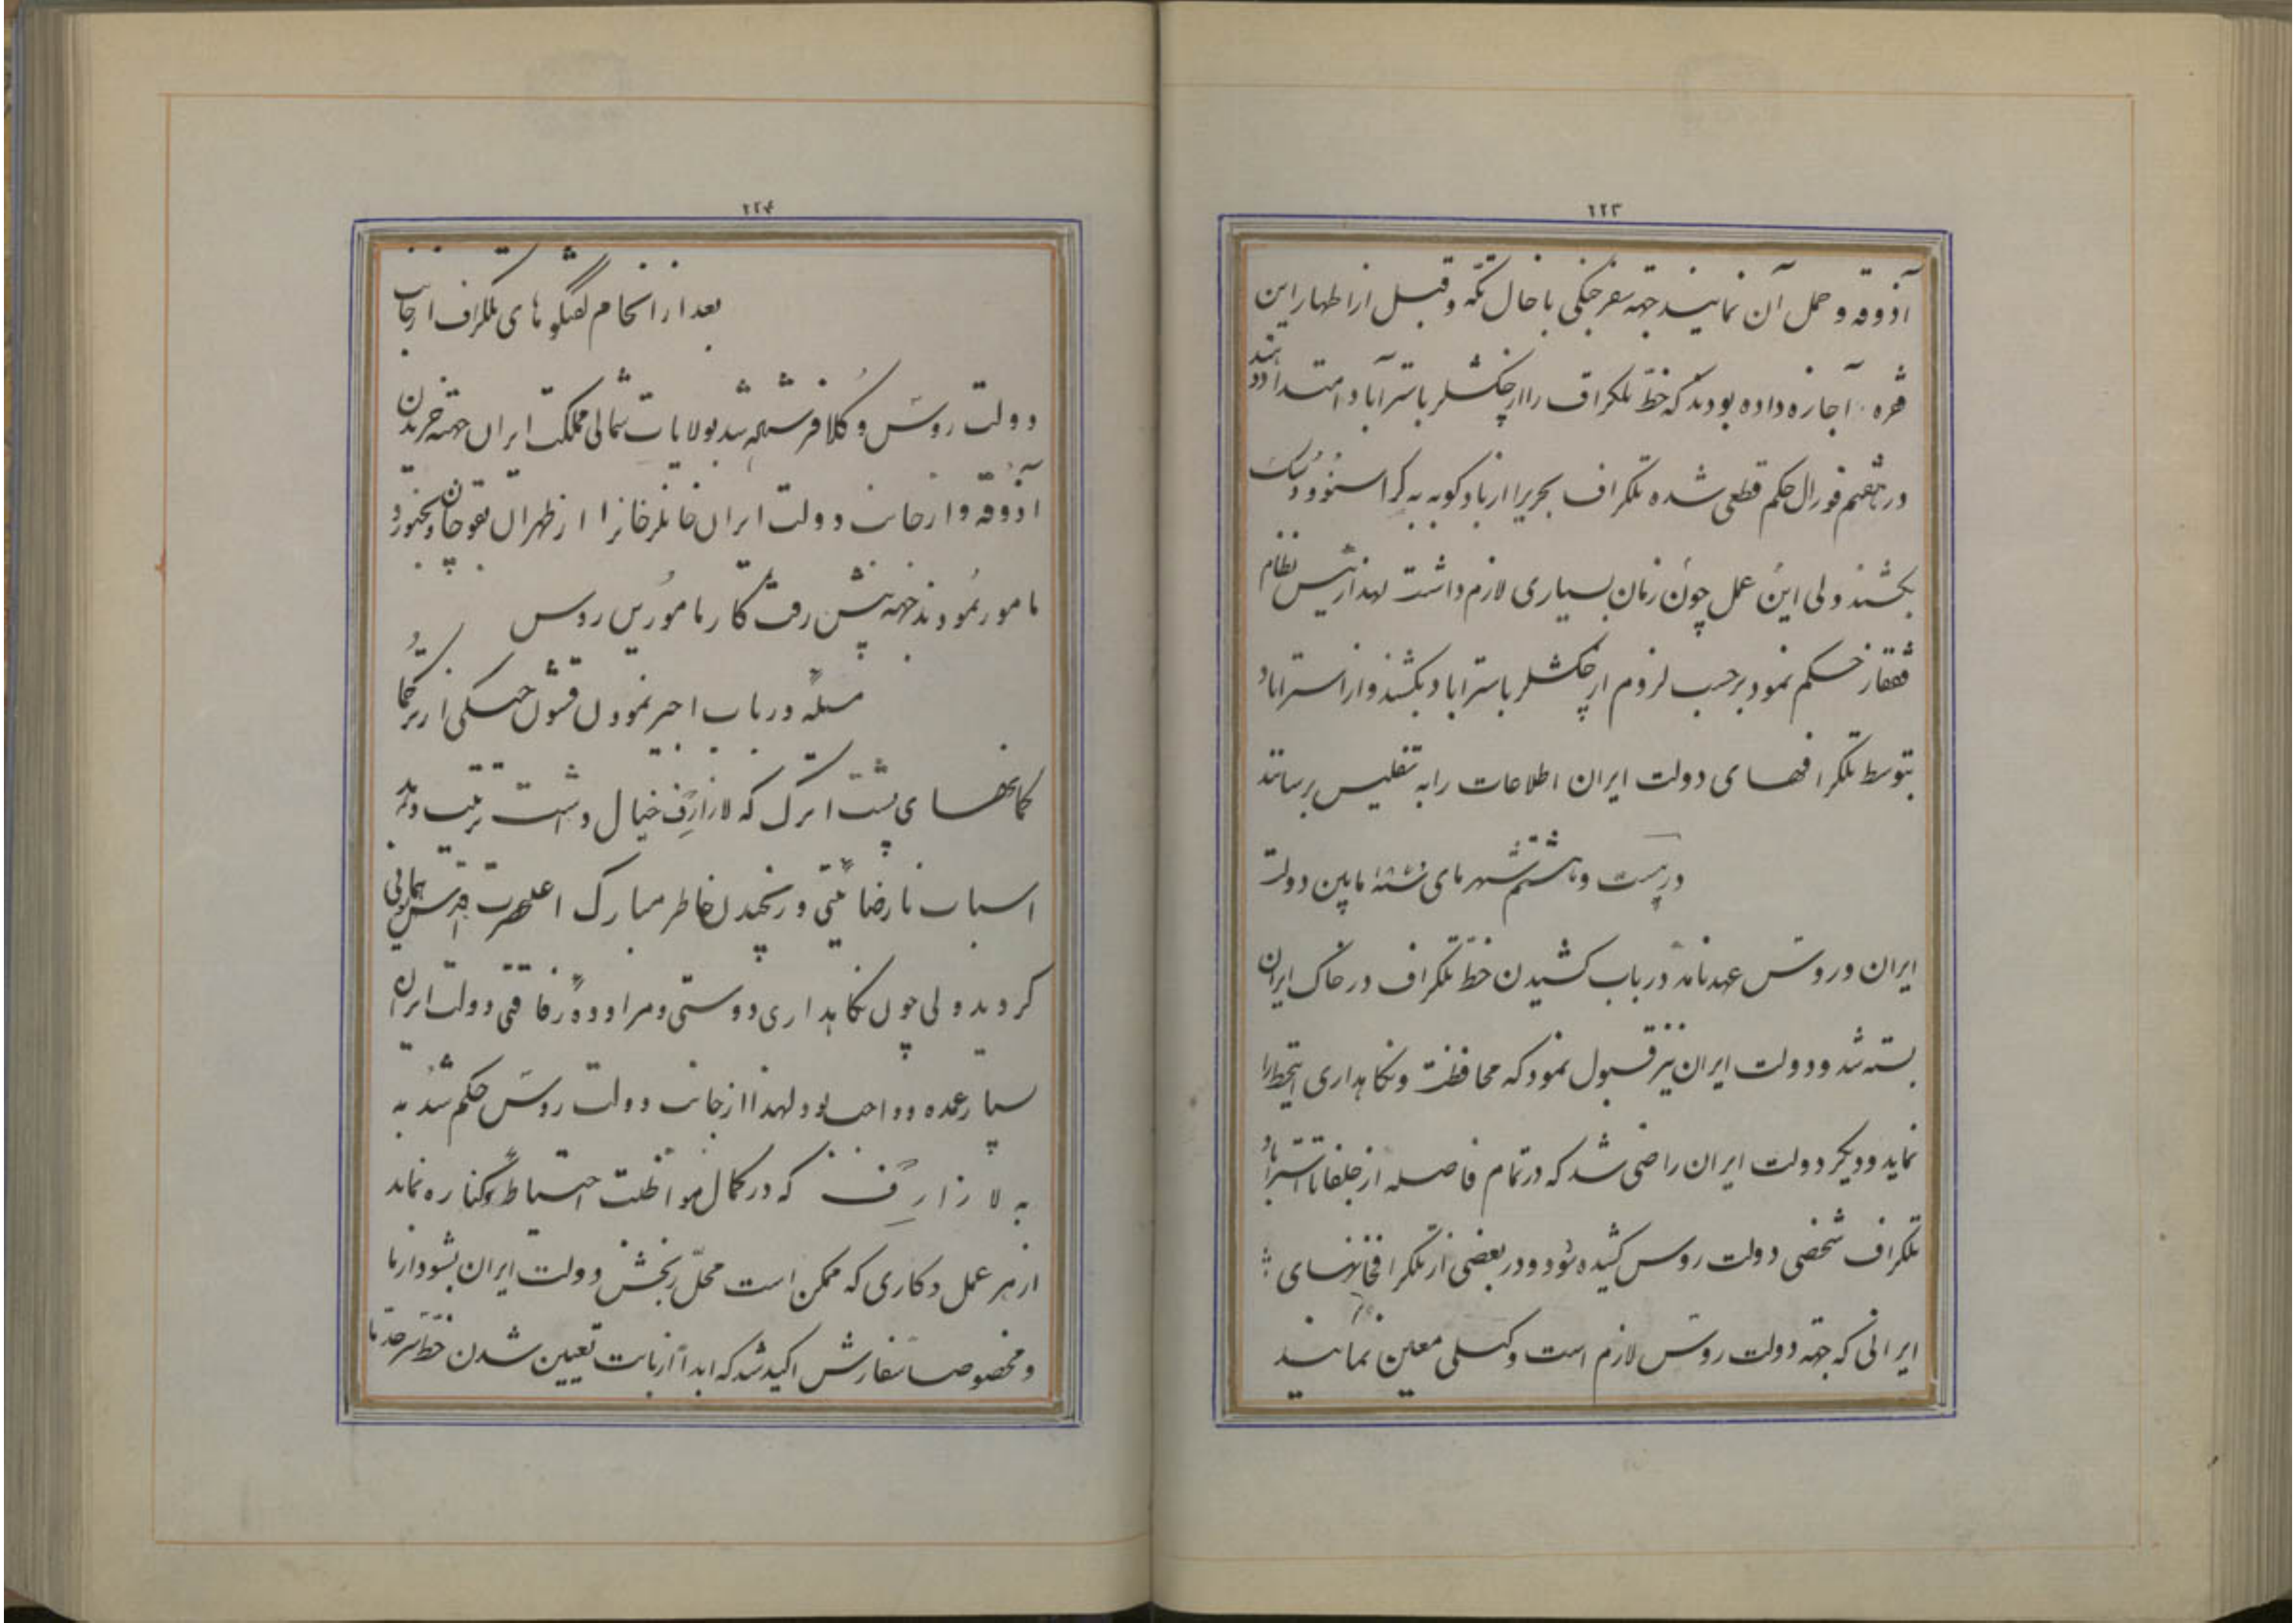 ۲۲۳
آذوقه و حمل آن نمایند جهته سفر جنگی با خال تکه و قبل از اظهار این
فقره اجازه داده بودند که خطّ تلکراف را از چکشلر باسترآباد امتداد دهند
در هفتم فورال حکم قطعی شده تلکراف بحریرا از بادکوبه به کراسنوودسک
بکشند ولی این عمل چون زمان بسیاری لازم داشت لهذا رئیس نظام
قفقاز حکم نمود برحسب لزوم از چکشلر باستراباد بکشند و از استراباد
بتوسط تلکرافهای دولت ایران اطلاعات را به تفلیس برسانند
در بیست و هشتم شهر مای مابین دولت
ایران و روس عهدنامهٔ در باب کشیدن خطّ تلکراف در خاک ایران
بسته شد و دولت ایران نیز قبول نمود که محافظت و نکاهداری اینخط را
نماید و دیکر دولت ایران راضی شد که در تمام فاصله از جلفا تا استراباد
تلکراف شخصی دولت روس کشیده شود و در بعضی از تلکرافخانهای
ایرانی که جهته دولت روس لازم است وکیلی معین نمایند
۲۲۴
بعد از انجام گفتگوهای تلکراف از جانب
دولت روس وکلا فرستاده شد بولایات شمالی مملکت ایران جهته خریدن
آذوقه و از جانب دولت ایران خانلرخانرا از طهران بقوچان و بجنورد
مامور نمودند جهته پیش رفت کار مامورین روس
مسئله در باب اجیر نمودن قشون جنگی از ترکما
کمانهای پشت اترک که لازارف خیال داشت ترتیب دهد
اسباب نارضایتی و رنجیدن خاطر مبارک اعلیحضرت اقدس همایونی
کردید ولی چون نکاهداری دوستی و مراوده و رفاقتی دولت ایران
بسیار عمده و واجب بود لهذا از جانب دولت روس حکم شد به
به لازارف که در کمال مواظبت احتیاط و کناره نماید
از هر عمل و کاری که ممکن است محلّ رنجش دولت ایران بشود از ما
و مخصوصا سفارش اکید شد که ابدا از بابت تعیین شدن خطّ سرحدّ ما